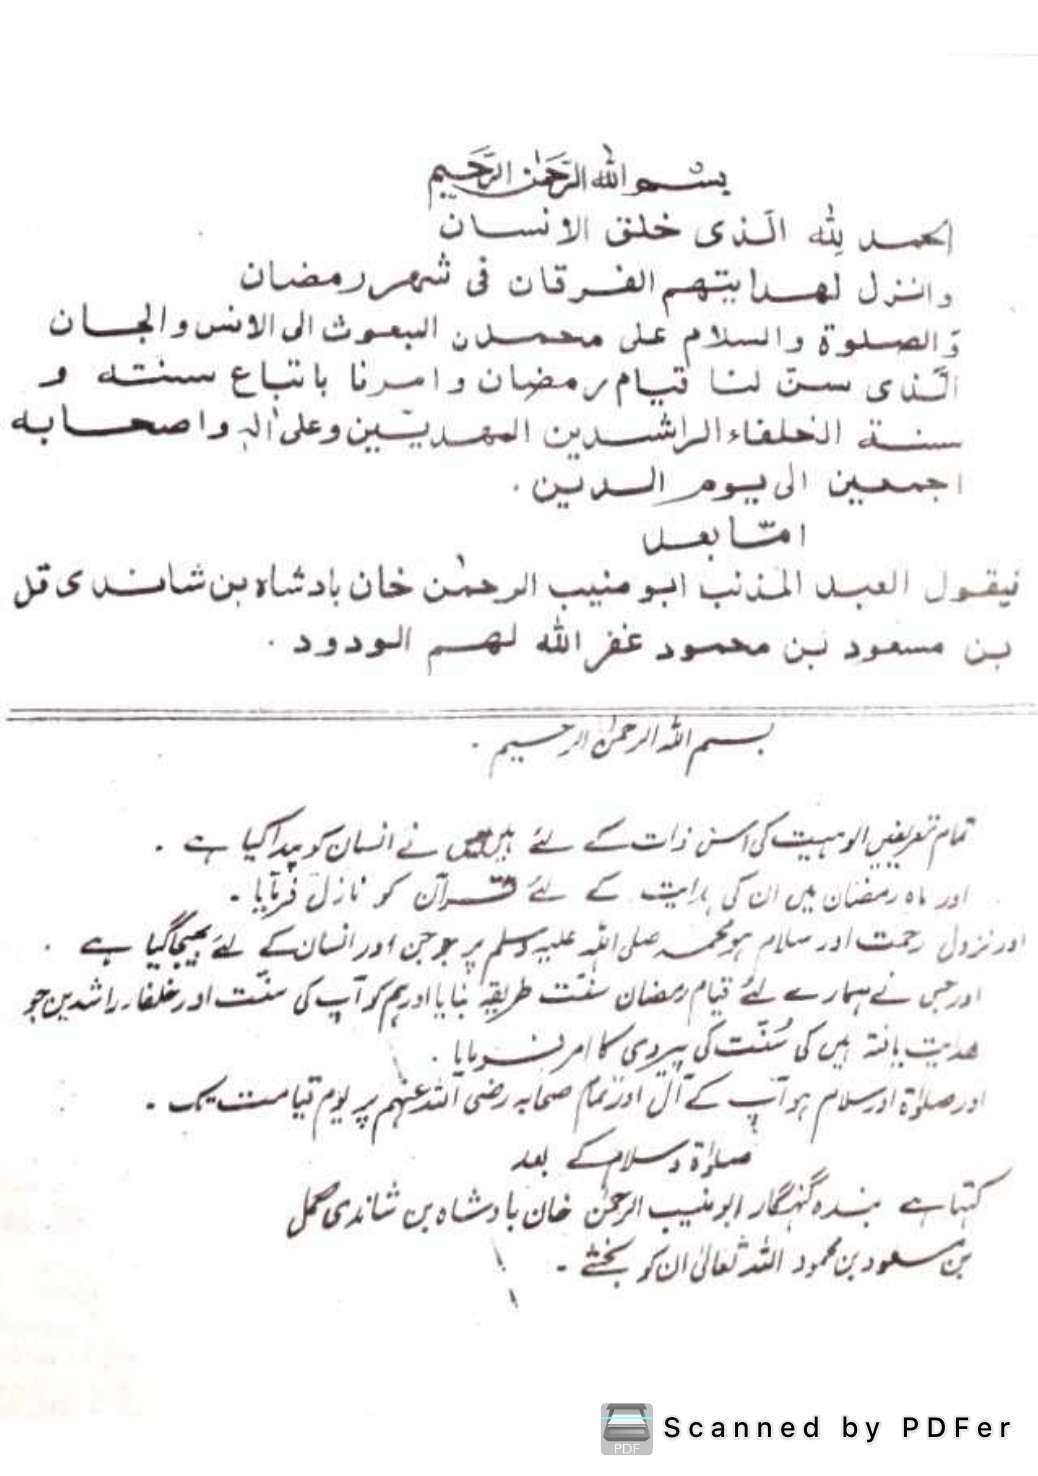 بسم الله الرحمٰن الرحيم
الحمد لِلّٰه الّذى خلق الانسان
وانزل لهدايتهم الفرقان فى شهر رمضان
وَّالصلوة والسلام على محمدن البعوث الى الانس والجان
الَّذى سنّ لنا قيام رمضان وامرنا باتباع سنته و
سنة الخلفاء الراشدين المهديّين وعلىٰ اٰلهٖ واصحابه
اجمعين الى يوم الدين .
امّا بعد
فيقول العبد المذنب ابو منيب الرحمٰن خان بادشاه بن شاندى قل
بن مسعود بن محمود غفر الله لهم الودود .
بسم الله الرحمٰن الرحيم .
تمام تعریفیں الوہیت کی اس ذات کے لئے ہیں جس نے انسان کو پیدا کیا ہے .
اور ماہ رمضان میں ان کی ہدایت کے لئے قرآن کو نازل فرمایا .
اور نزول رحمت اور سلام ہو محمد صلی اللہ علیہ وسلم پر جو جن اور انسان کے لئے بھیجا گیا ہے .
اور جس نے ہمارے لئے قیام رمضان سنّت طریقہ بنایا اور ہم کو آپ کی سنّت اور خلفاء راشدین جو
ھدایت یافتہ ہیں کی سُنّت کی پیروی کا امر فرمایا .
اور صلوٰۃ اور سلام ہو آپ کے آل اور تمام صحابہ رضی اللہ عنہم پر یوم قیامت تک .
صلوٰۃ و سلام کے بعد
کہتا ہے بندہ گنہگار ابو منیب الرحمٰن خان بادشاہ بن شاندی
بن مسعود بن محمود اللہ تعالیٰ ان کو بخشے .
PDF
Scanned by PDFer